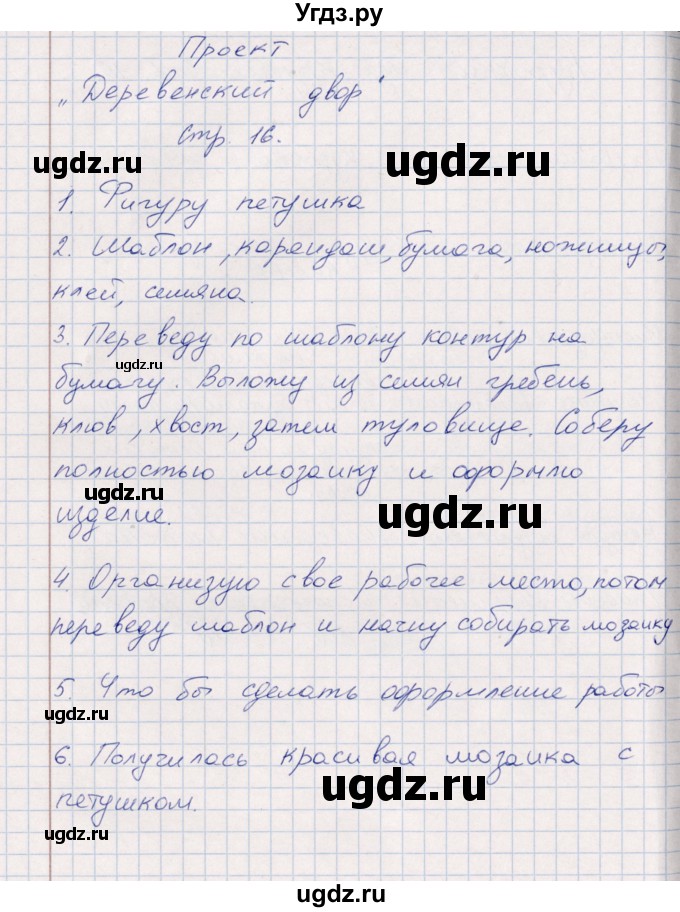 Угдз.ру
Проект
„Деревенский двор"
Стр. 16.
ugdz.ru
ugdz.ru
1. Фигуру петушка
2. Шаблон, карандаш, бумага, ножницы,
ugdz.ru
клей, семяна.
3. Переведу по шаблону контур на
ugdz.ru
бумагу. Выложу из семян гребень,
клюв, хвост, затем туловище. Соберу
полностью мозаику и оформлю
ugdz.ru
изделие.
ugdz.ru
4. Организую свое рабочее место, потом
переведу шаблон и начну собирать мозаику
5. Что бы сделать оформление работы
ugdz.ru
6. Получилась красивая мозаика с
петушком.
ugdz.ru
ugdz.ru
ugdz.ru